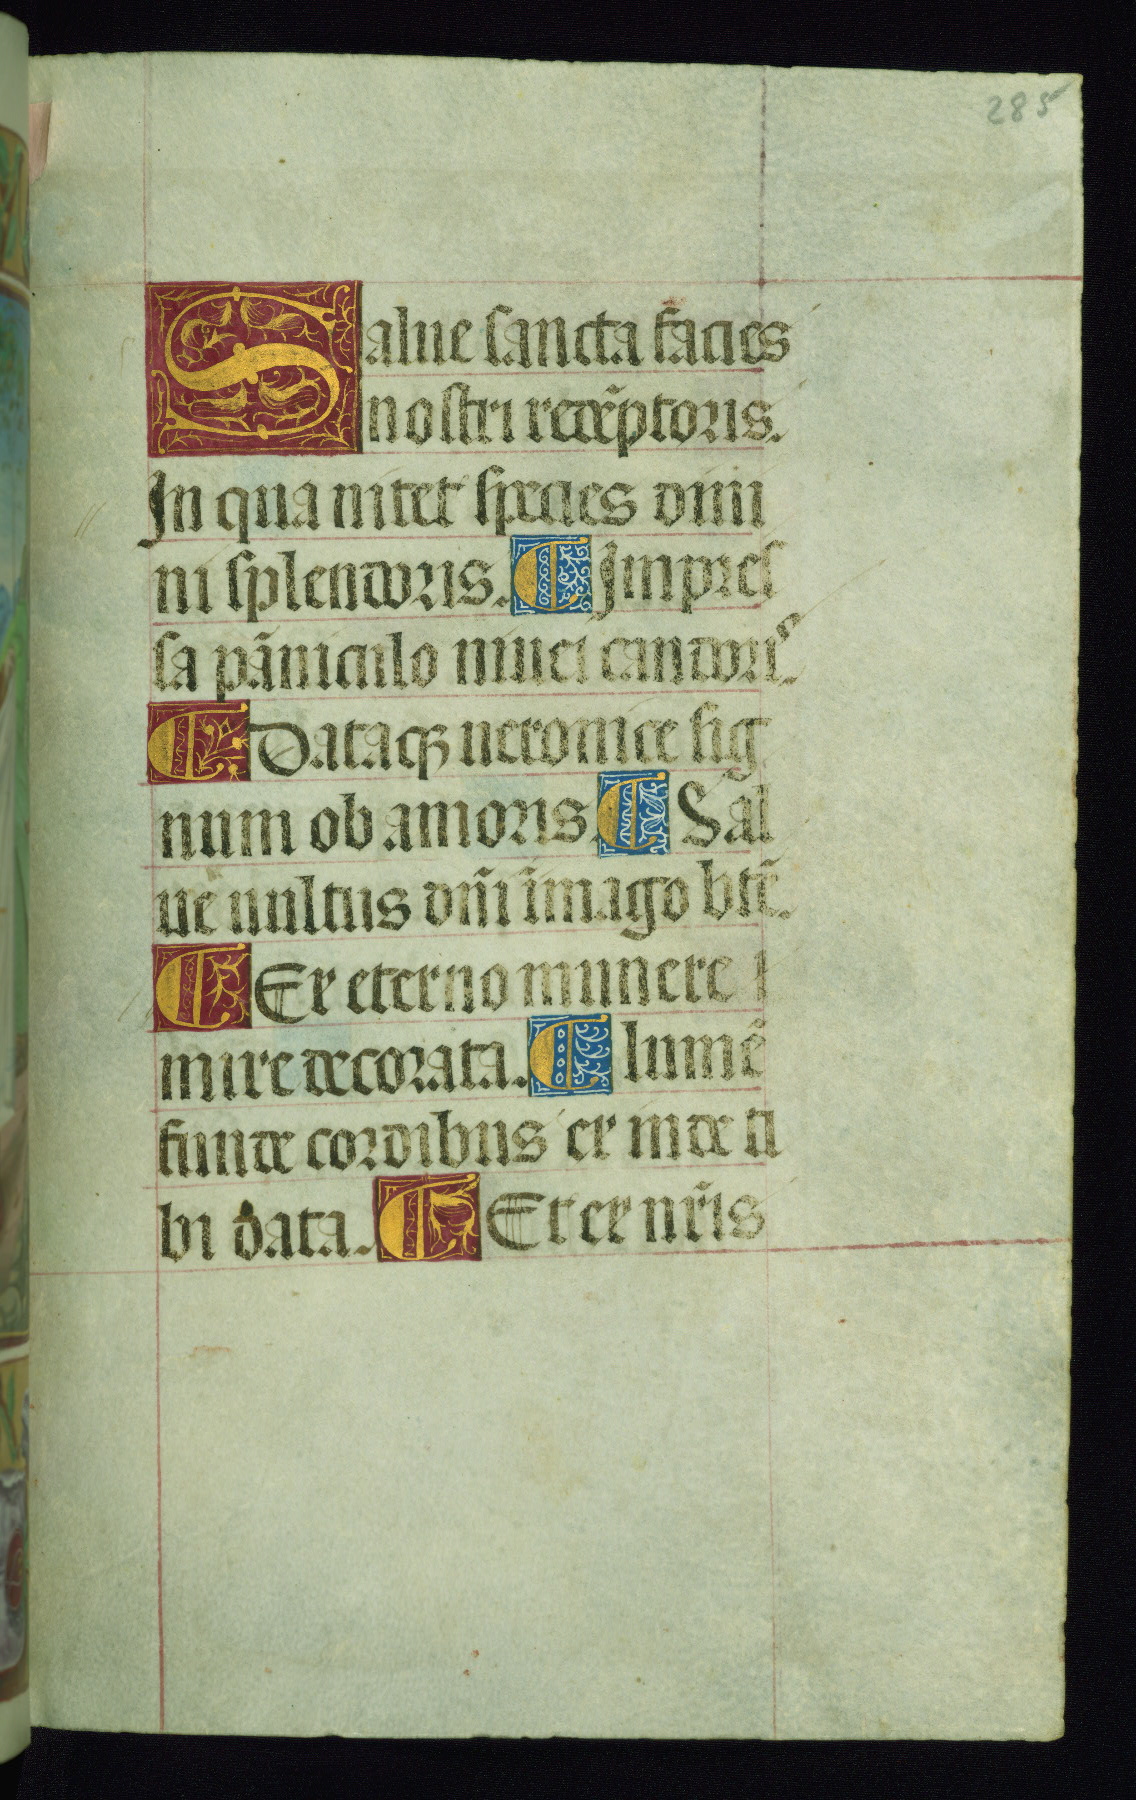 285
Salue sancta facies
nostri rede͂ptoris.
In qua nitet species diui
ni splendoris. Impres
sa pa͂niculo niuei candorꝰ.
Dataqꝫ ueronice sig
num ob amoris. Sal
ue uultus dn͂i imago bt͂e.
Ex eterno munere
mire decorata. lume͂
funde cordibus ex inde ti
bi data. Et ex nr͂is